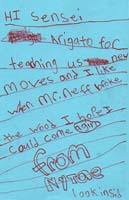 HI Sensei
Arigato for
teaching us new
moves and I like
when mr. neer broke
the wood I hope I
could come again
from
lookinsd